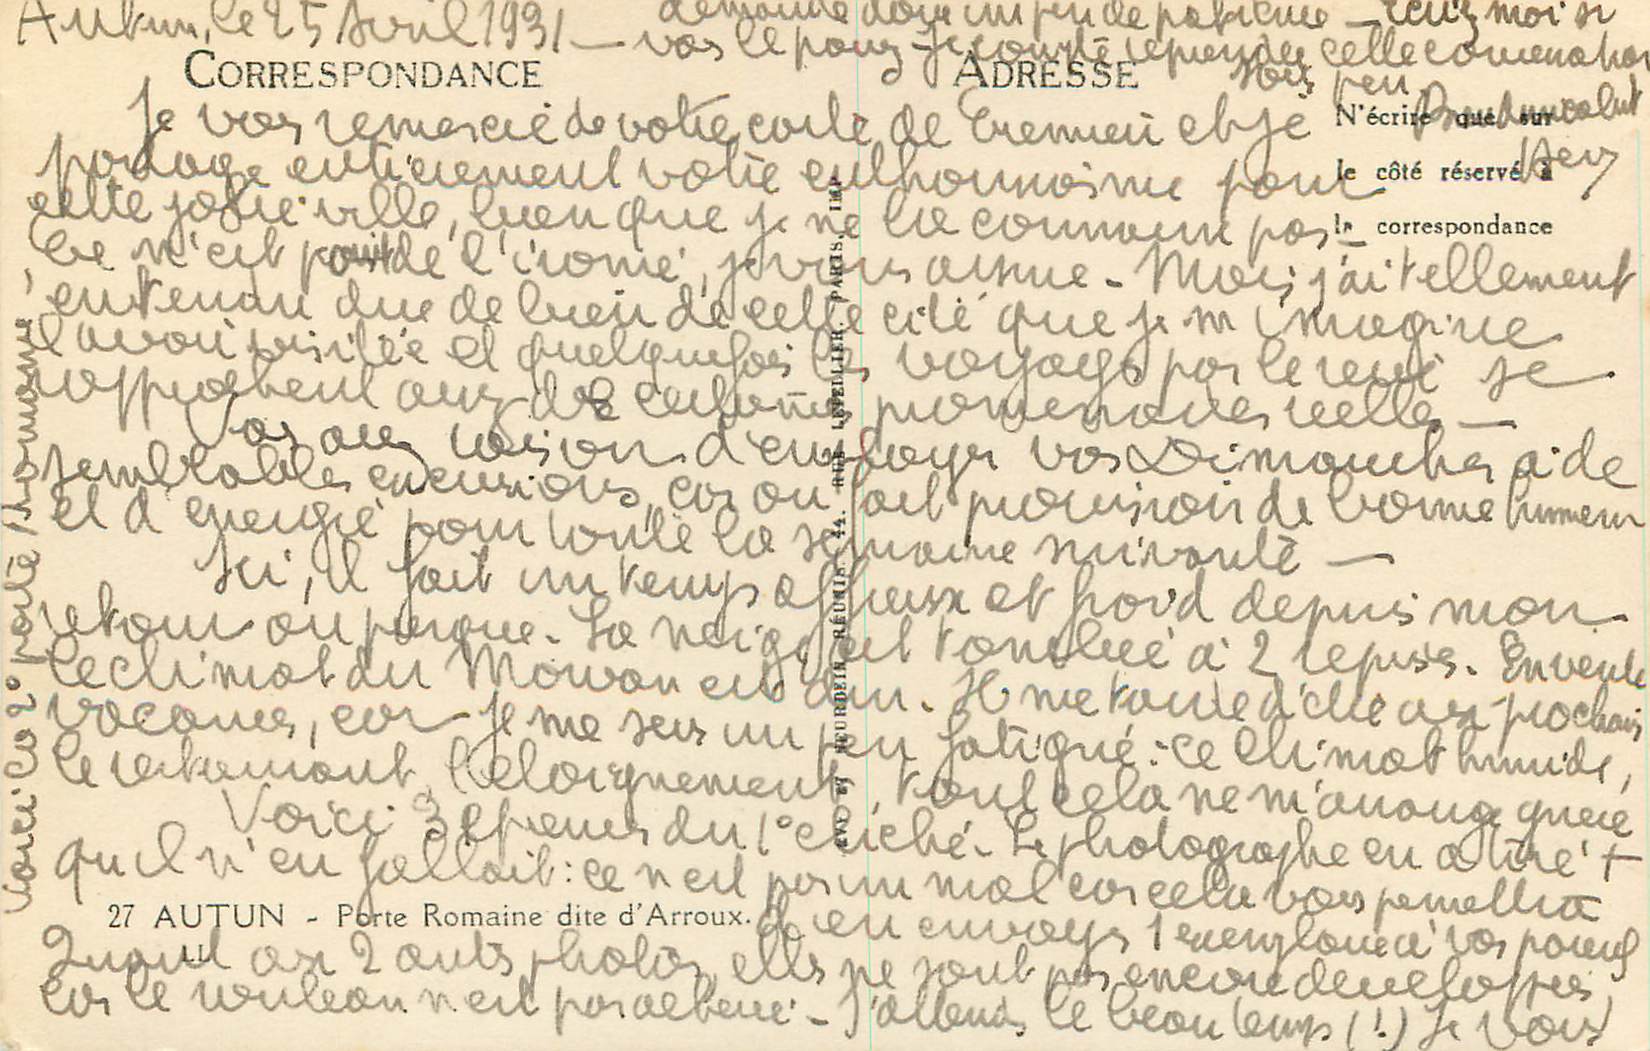 Autun, le 25 Avril 1931 —
CORRESPONDANCE
ADRESSE
N'écrire que sur
le côté réservé à
la correspondance
Je vous remercie de votre carte de Cremieu et je
partage entièrement votre enthousiasme pour
cette jolie ville, bien que je ne la connaisse pas —
Ce n'est point de l'ironie, je vous assure - Mais j'ai tellement
entendu dire de bien de cette cité que je m'imagine
l'avoir visitée et quelquefois les voyages par le rêve se
rapprochent aux des promenades réelles —
Vous avez raison d'employer vos Dimanches à de
semblables excursions, car on fait provision de bonne humeur
et d'énergie pour toute la semaine suivante —
Ici, il fait un temps affreux et froid depuis mon
retour ou presque - La neige est tombée à 2 reprises. En vérité
le climat du Morvan est dur. Il me tarde d'être aux prochaines
vacances, car je me sens un peu fatigué : ce climat humide,
le restaurant, l'éloignement, tout cela ne m'arrange guère
Voici 3 épreuves du 1° cliché - Le photographe en a tiré +
qu'il n'en fallait : ce n'est pas un mal car cela vous permettra
d'en envoyer 1 exemplaire à vos parents
27 AUTUN - Porte Romaine dite d'Arroux.
Quant aux 2 autres photos, elles ne sont pas encore développées,
car le rouleau n'est pas achevé - J'attends le beau temps (!) Je vous
demande donc un peu de patience — Ecrivez moi si
vous le pouvez - Je compte reprendre cette conversation
sous peu.
Voici la 2° porte Romaine -
LEVY et NEURDEIN RÉUNIS, 44, RUE LETELLIER, PARIS. IMP.